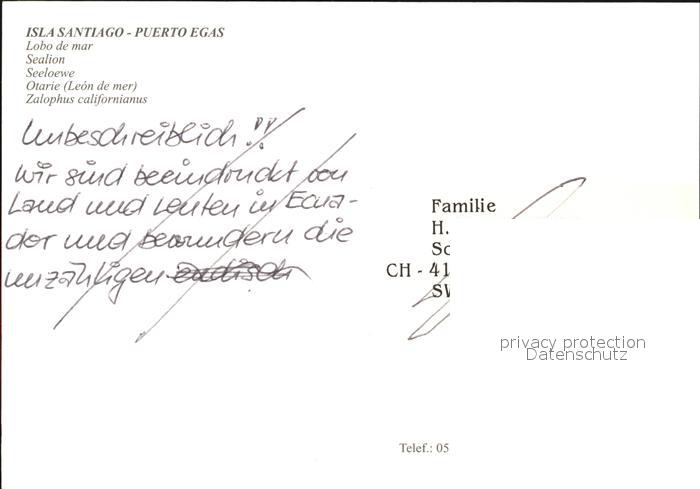 ISLA SANTIAGO - PUERTO EGAS
Lobo de mar
Sealion
Seeloewe
Otarie (León de mer)
Zalophus californianus
Unbeschreiblich!!
Wir sind beeindruckt von
Land und Leuten in Ecua-
dor und bewundern die
unzähligen
Familie
H.
Sc
CH - 41
SW
privacy protection
Datenschutz
Telef.: 05